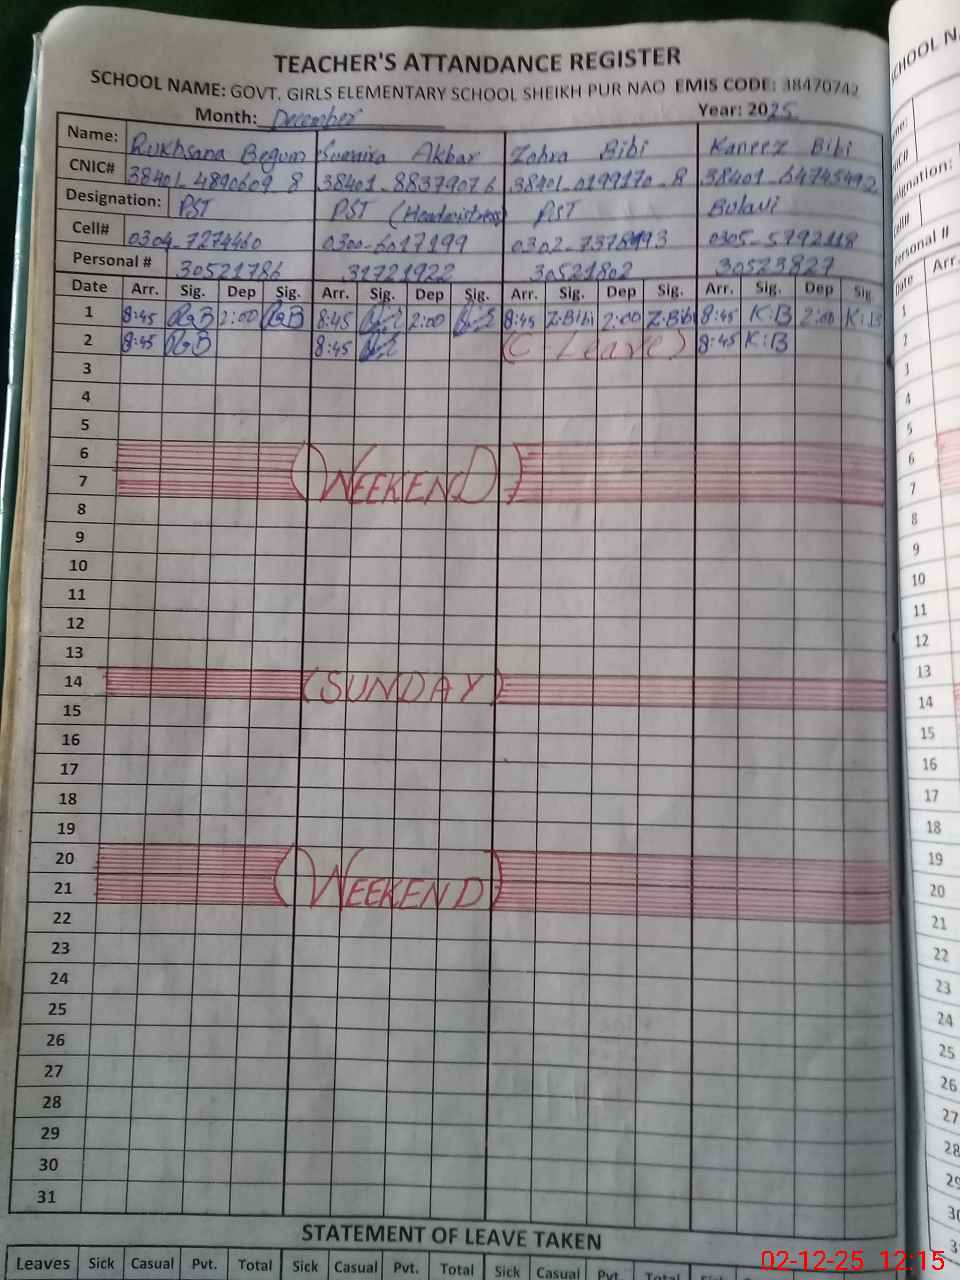 TEACHER'S ATTANDANCE REGISTER
SCHOOL NAME: GOVT. GIRLS ELEMENTARY SCHOOL SHEIKH PUR NAO EMIS CODE: 38470742
Month: December Year: 2025
Name: Rukhsana Begum Sumaira Akbar Zahra Bibi Kaneez Bibi
CNIC# 38401-4890609-8 38401-88379076 38401-0199170-8 38401-64745492
Designation: PST PST (Headmistress) PST Bulavi
Cell# 0304-7274460 0300-6017199 0302-7378493 0305-5792118
Personal # 30521786 31721922 30521802 30523827
Date Arr. Sig. Dep Sig. Arr. Sig. Dep Sig. Arr. Sig. Dep Sig. Arr. Sig. Dep Sig
1 8:45 RGB 2:00 RGB 8:45 2:00 8:45 Z.Bibi 2:00 Z.Bibi 8:45 K:B 2:00 K:B
2 8:45 RGB 8:45 (C Leave) 8:45 K:B
3
4
5
6
7 (WEEKEND)
8
9
10
11
12
13
14 (SUNDAY)
15
16
17
18
19
20
21 (WEEKEND)
22
23
24
25
26
27
28
29
30
31
STATEMENT OF LEAVE TAKEN
Leaves Sick Casual Pvt. Total Sick Casual Pvt. Total Sick Casual Pvt. Total Sick
SCHOOL
Designation:
Cell#
Personal #
Date Arr.
1
2
3
4
5
6
7
8
9
10
11
12
13
14
15
16
17
18
19
20
21
22
23
24
25
26
27
28
29
02-12-25 12:15